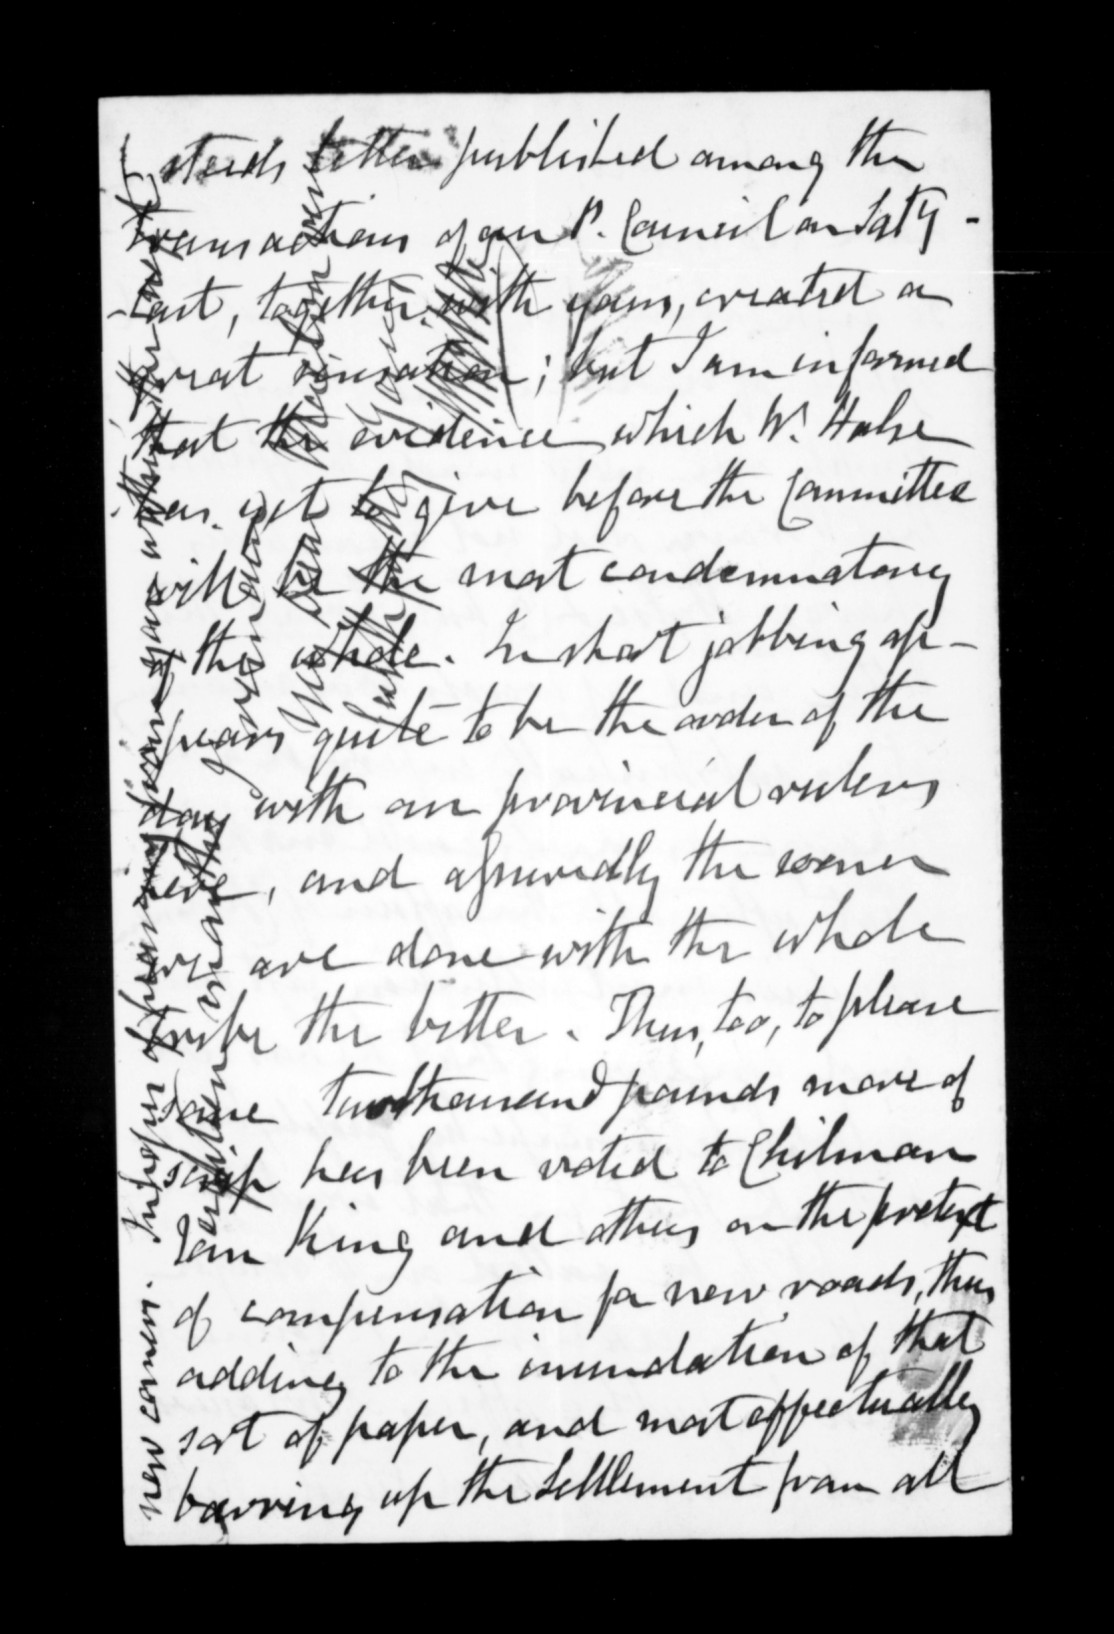 steads letter published among the
transactions of our P. Council on Saty -
- last, together with yours, created a
great sensation; but I am informed
that the evidence which Wm. Halse
has yet to give before the Committee
will be the most condemnatory
of the whole. In short jobbing ap-
pears quite to be the order of the
day with our provincial rulers
here, and assuredly the sooner
we are done with the whole
tribe the better. Then, too, to please
some two thousand pounds more of
scrip has been voted to Chilman
Tom King and others on the pretext
of compensation for new roads, thus
adding to the inundation of that
sort of paper, and most effectually
barring up the settlement from all
new comers. In hopes of hearing from you within the next